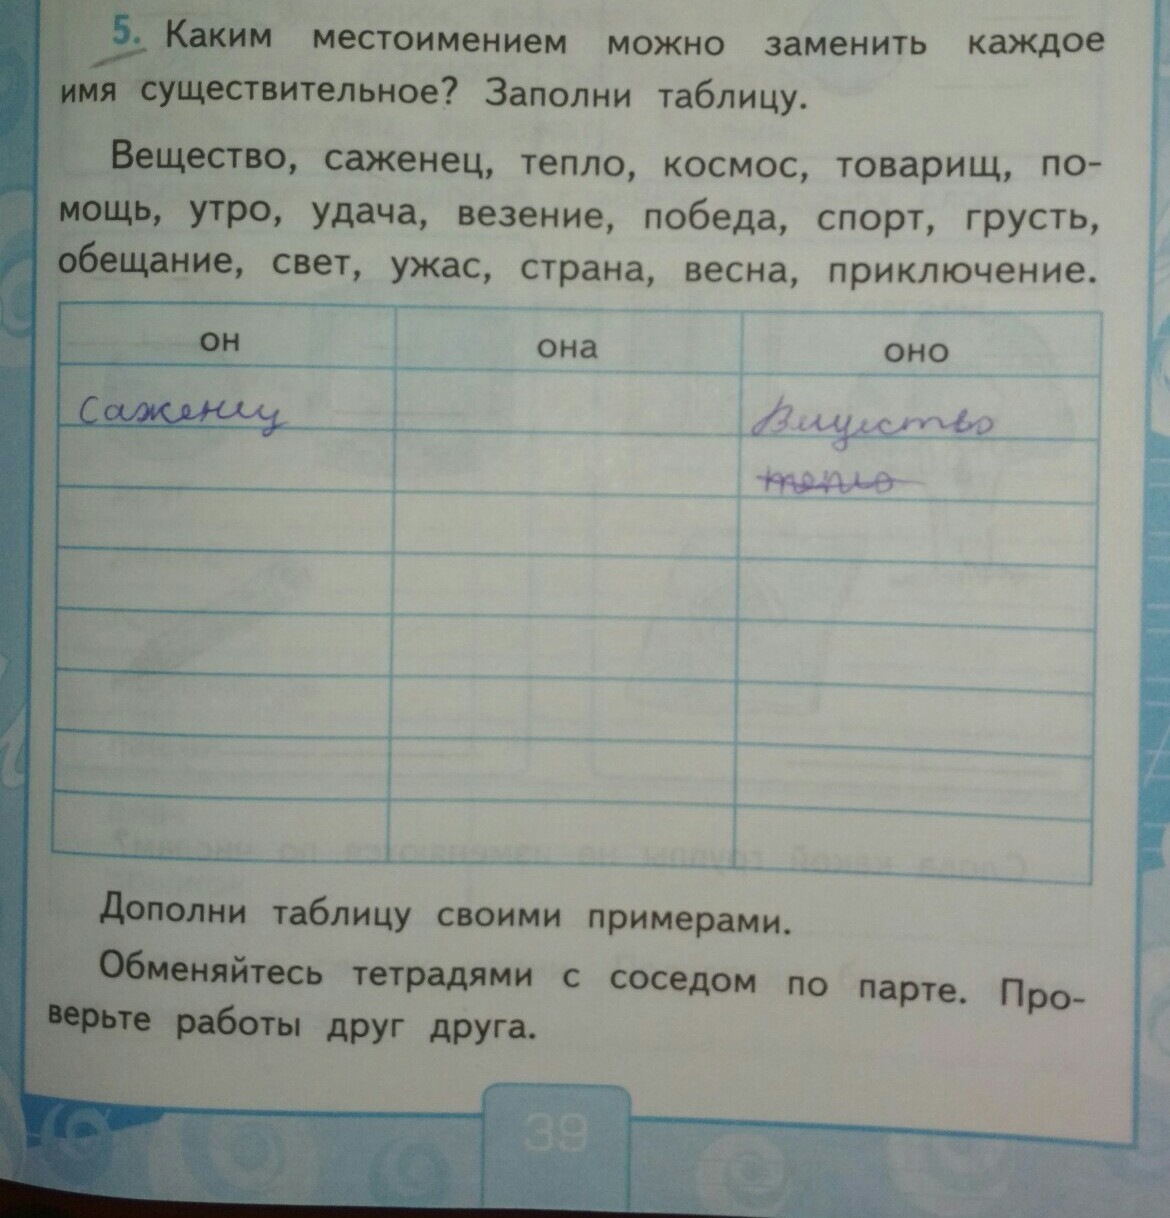 5. Каким местоимением можно заменить каждое
имя существительное? Заполни таблицу.
Вещество, саженец, тепло, космос, товарищ, по-
мощь, утро, удача, везение, победа, спорт, грусть,
обещание, свет, ужас, страна, весна, приключение.
он она оно
Саженец Вещество
тепло
Дополни таблицу своими примерами.
Обменяйтесь тетрадями с соседом по парте. Про-
верьте работы друг друга.
39